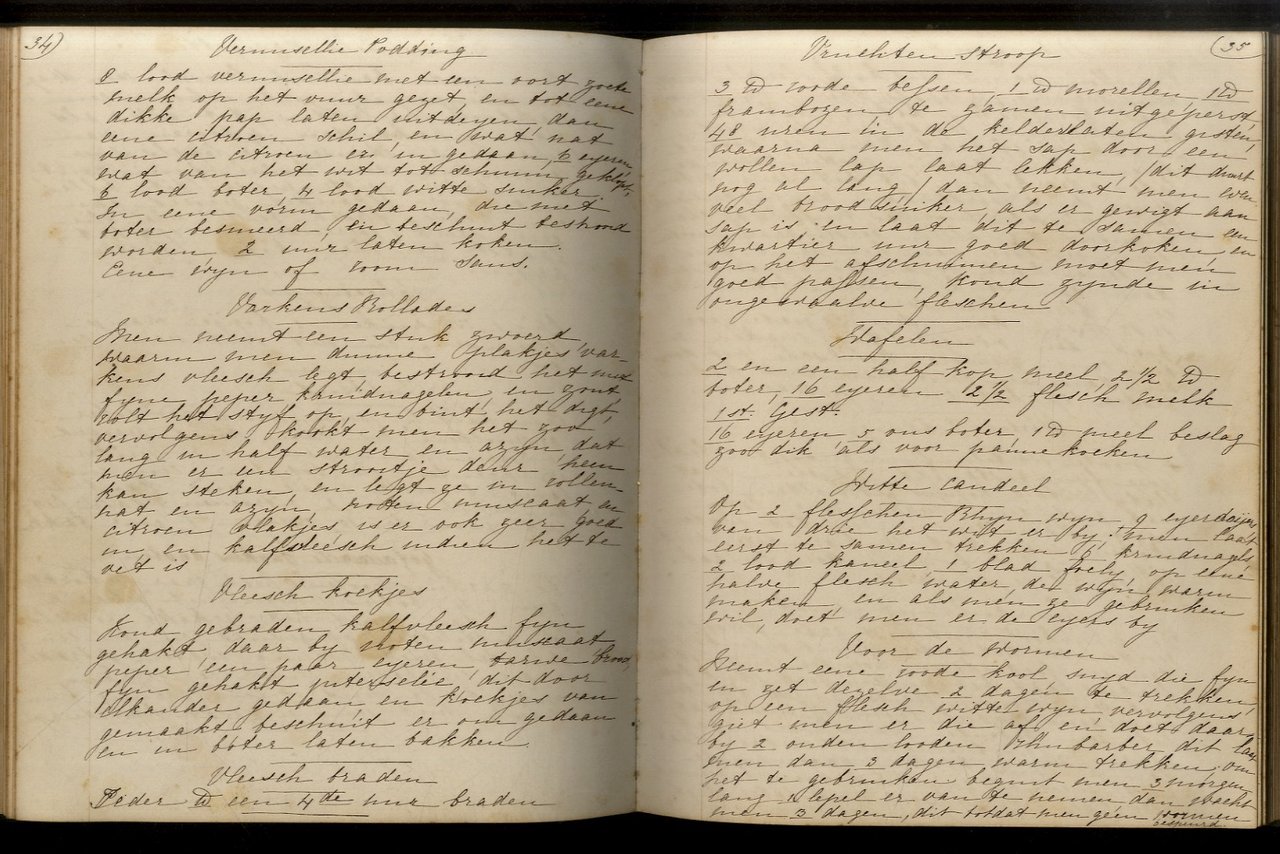 34)
Vermisellie Podding
8 lood vermisellie met een oort zoete
melk op het vuur gezet, en tot eene
dikke pap laten uitdeyen, dan
eene citroen schil en wat nat
van de citroen er in gedaan, 6 eyeren
wat van het wit tot schuim geklopt,
6 lood boter, 4 lood witte suiker
In eene vorm gedaan, die met
boter besmeerd en beschuit bestrooid
worden 2 uur laten koken.
Eene wyn of room saus.
Varkens Rollades
Men neemt een stuk zwoerd
waarin men dunne plakjes var-
kens vleesch legt, bestrooid het met
fyne peper kruidnagelen, en zout,
rolt het styf op, en bint het digt,
vervolgens kookt men het zoo
lang in half water en azyn dat
men er een strootje deur heen
kan steken, en legt ze in vollen
nat en azyn, noten muscaat, en
citroen plakjes is er ook zeer goed
in, en kalfsvleesch indien het te
vet is
Vleesch koekjes
Koud gebraden kalfvleesch fyn
gehakt daar by noten muscaat
peper een paar eyeren, tarwe brood,
fyn gehakt pieterselie, dit door
elkander gedaan en koekjes van
gemaakt beschuit er om gedaan
en in boter laten bakken.
Vleesch braden
Ieder ℔ een 4de uur braden
(35
Vruchten stroop
3 ℔ roode bessen, 1 ℔ morellen 1 ℔
frambozen te zamen uitgeperst
48 uren in de kelder laten gisten,
waarna men het sap door een
wollen lap laat lekken, (dit duurt
nog al lang) dan neemt men even
veel broodsuiker, als er gewigt aan
sap is en laat dit te samen een
kwartier uur goed doorkoken en
op het afschuimen moet men
goed passen, koud zynde in
ongezwavelde fleschen
Wafelen
2 en een half kop meel 2 1/2 ℔
boter, 16 eyeren 2 1/2 flesch melk
1 st. Gest.
16 eyeren 5 ons boter 1 ℔ meel beslag
zoo dik als voor pannekoeken
Witte candeel
Op 2 flesschen Rhyn wyn 9 eyerdoijers
van drie het wit er by; men laat
eerst te samen trekken 6 kruidnagels
2 lood kaneel 1 blad foely op eene
halve flesch water, de wyn warm
maken, en als men ze gebruiken
wil, doet men er de eyers by
Voor de Wormen
Neemt eene roode kool snyd die fyn
en zet dezelve 2 dagen te trekken
op een flesch witte wyn vervolgens
giet men er die af en doet daar
by 2 ouden looden Rhubarber dit laat
men dan 3 dagen warm trekken; om
het te gebruiken begint men 3 morgen
lang 1 lepel er van te nemen dan wacht
men 3 dagen, dit totdat men geen wormen
bespeurd.